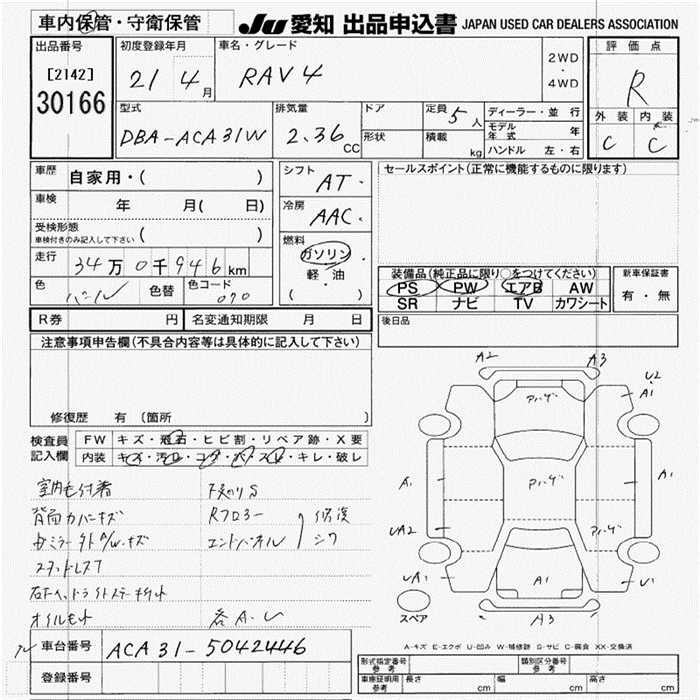 車内保管・守衛保管 JU 愛知 出品申込書 JAPAN USED CAR DEALERS ASSOCIATION
出品番号 初度登録年月 車名・グレード 評価点
[2142] 21 4月 RAV4 2WD・4WD R
30166
型式 排気量 ドア 定員 5人 ディーラー・並行 外装 内装
DBA-ACA31W 2.36CC 形状 積載 kg モデル年式 年 C C
ハンドル 左・右
車歴 自家用・( ) シフト AT セールスポイント(正常に機能するものに限ります)
車検 年 月( 日) 冷房 AAC
受検形態
車検付きのみ記入して下さい 燃料 ガソリン
走行 34万0千946km 軽・油 装備品(純正品に限り○をつけてください) 新車保証書
色 パール 色替 色コード 070 ( ) PS PW エアB AW 有・無
SR ナビ TV カワシート
R券 円 名変通知期限 月 日 後日品
注意事項申告欄(不具合内容等は具体的に記入して下さい)
修復歴 有(箇所 )
検査員記入欄 FW キズ・飛石・ヒビ割・リペア跡・X要
内装 キズ・汚れ・コゲ・穴・スレ・キレ・破レ
A2 A3
U2
A1 A1
アハ゜ーサ゛
A1 A1
UA2
UA1 A1 U1
A3
室内
背面カバーキズ Rフロアー 修復
エンドパネル
各A.U
スペア
A-キズ E-エクボ U-凹み W-補修跡 S-サビ C-腐食 XX-交換済
車台番号 ACA31-5042446
登録番号
形式指定番号 参考 類別区分番号 参考
車庫証明用 参考 長さ cm 幅 cm 高さ cm